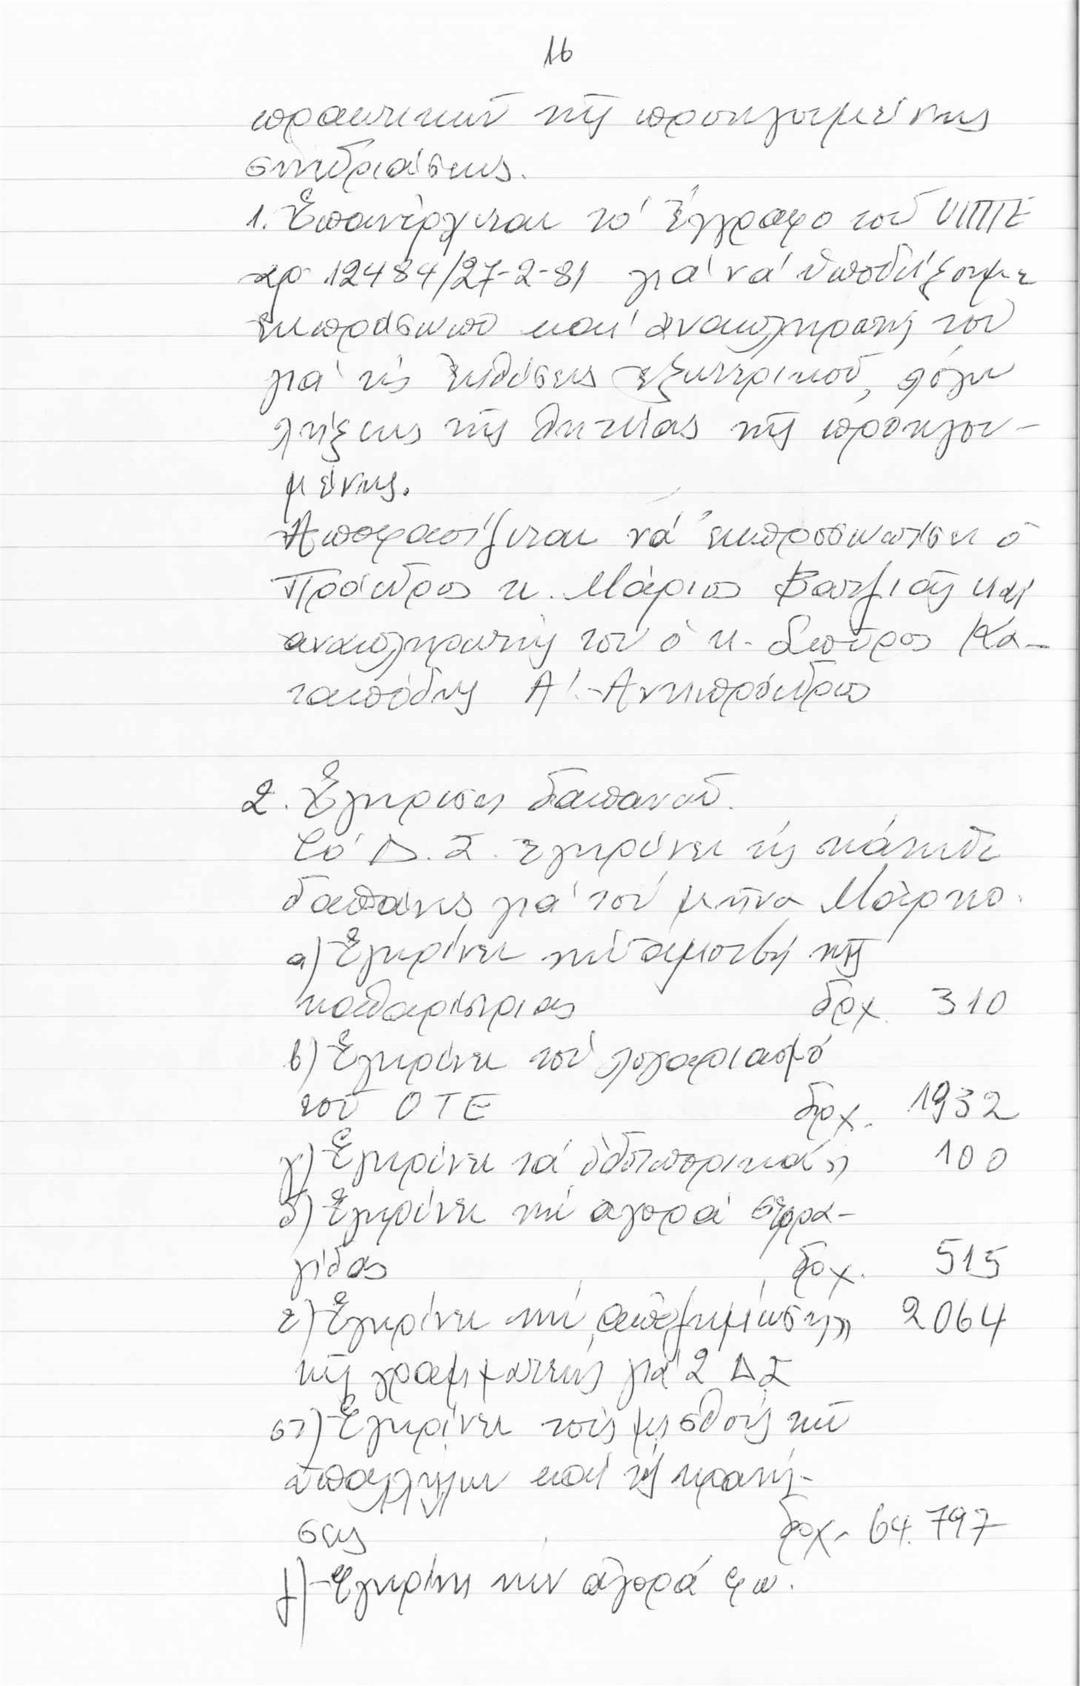 16
πρακτικῶν τῆς προηγουμένης
συνεδριάσεως.
1. Ἐπανέρχεται τό ἔγγραφο τοῦ ΥΠΠΕ
αρ 12484/27-2-81 γιά νά ὑποδείξουμε
ἐκπρόσωπο καί ἀναπληρωτή του
γιά τίς ἐκθέσεις ἐξωτερικοῦ, λόγω
λήξεως τῆς θητείας τῆς προηγου-
μένης.
Ἀποφασίζεται νά ἐκπροσωπήσει ὁ
Πρόεδρος κ. Μάριος Βατζιᾶς καί
αναπληρωτής του ὁ κ. Σπῦρος Κα-
ταπόδης Α! Ἀντιπρόεδρος
2. Ἐγκρίσεις δαπανῶν.
Τό Δ.Σ. ἐγκρίνει τίς κάτωθι
δαπάνες γιά τόν μῆνα Μάρτιο.
α) Ἐγκρίνει τήν ἀμοιβή τῆς
καθαρίστριας δρχ. 310
β) Ἐγκρίνει τόν λογαριασμό
τοῦ ΟΤΕ δρχ. 1932
γ) Ἐγκρίνει τά ὁδοιπορικά " 100
δ) Ἐγκρίνει τήν αγορά σφρα-
γίδας δρχ. 515
ε) Ἐγκρίνει τήν ἀποζημίωση " 2064
τῆς γραμματέως γιά 2 ΔΣ
στ) Ἐγκρίνει τούς μισθούς τῶν
ὑπαλλήλων καί τίς κρατή-
σεις δρχ. 64.797
ζ) Ἐγκρίνει τήν ἀγορά φω.